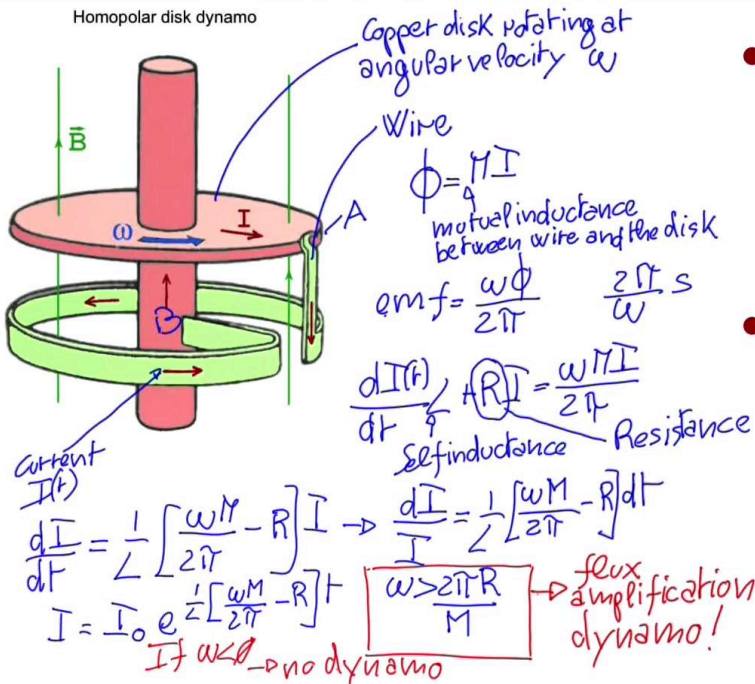 Homopolar disk dynamo
Copper disk rotating at
angular velocity ω
Wire
B⃗
ϕ = MI
A
I
ω
mutual inductance
between wire and the disk
emf = ωϕ/2π    2π/ω s
B
dI(t)/dt L + RI = ωMI/2π
Selfinductance
Resistance
Current
I(t)
dI/dt = 1/L [ωM/2π - R] I → dI/I = 1/L [ωM/2π - R] dt
I = I₀ e^{1/L [ωM/2π - R] t}
ω > 2πR/M
→ flux
amplification
dynamo!
If ω<0 → no dynamo